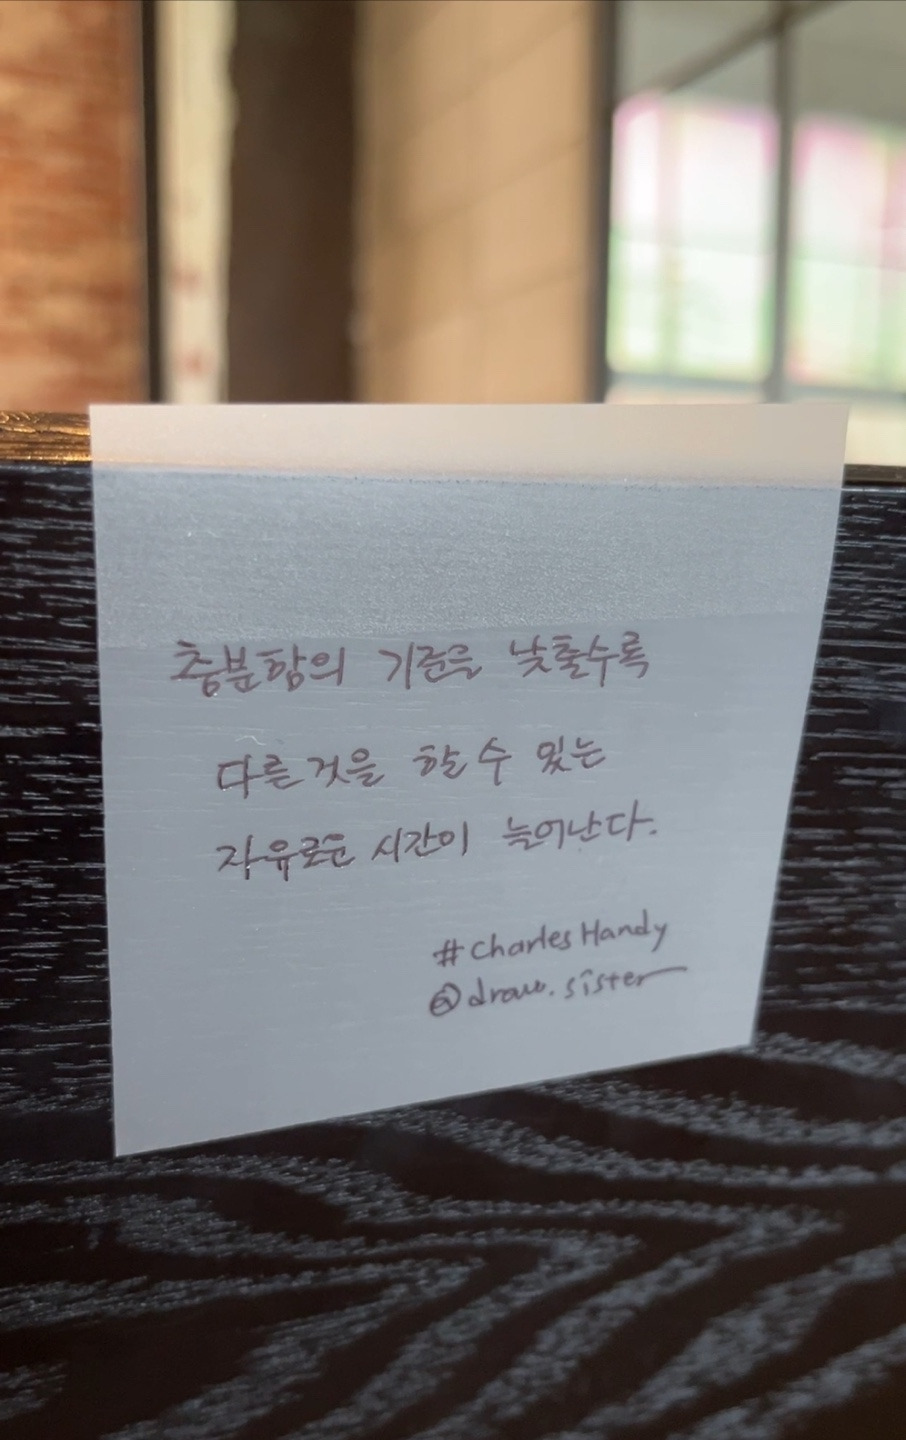 충분함의 기준을 낮출수록
다른것을 할 수 있는
자유로운 시간이 늘어난다.
#CharlesHandy
@draw.sister